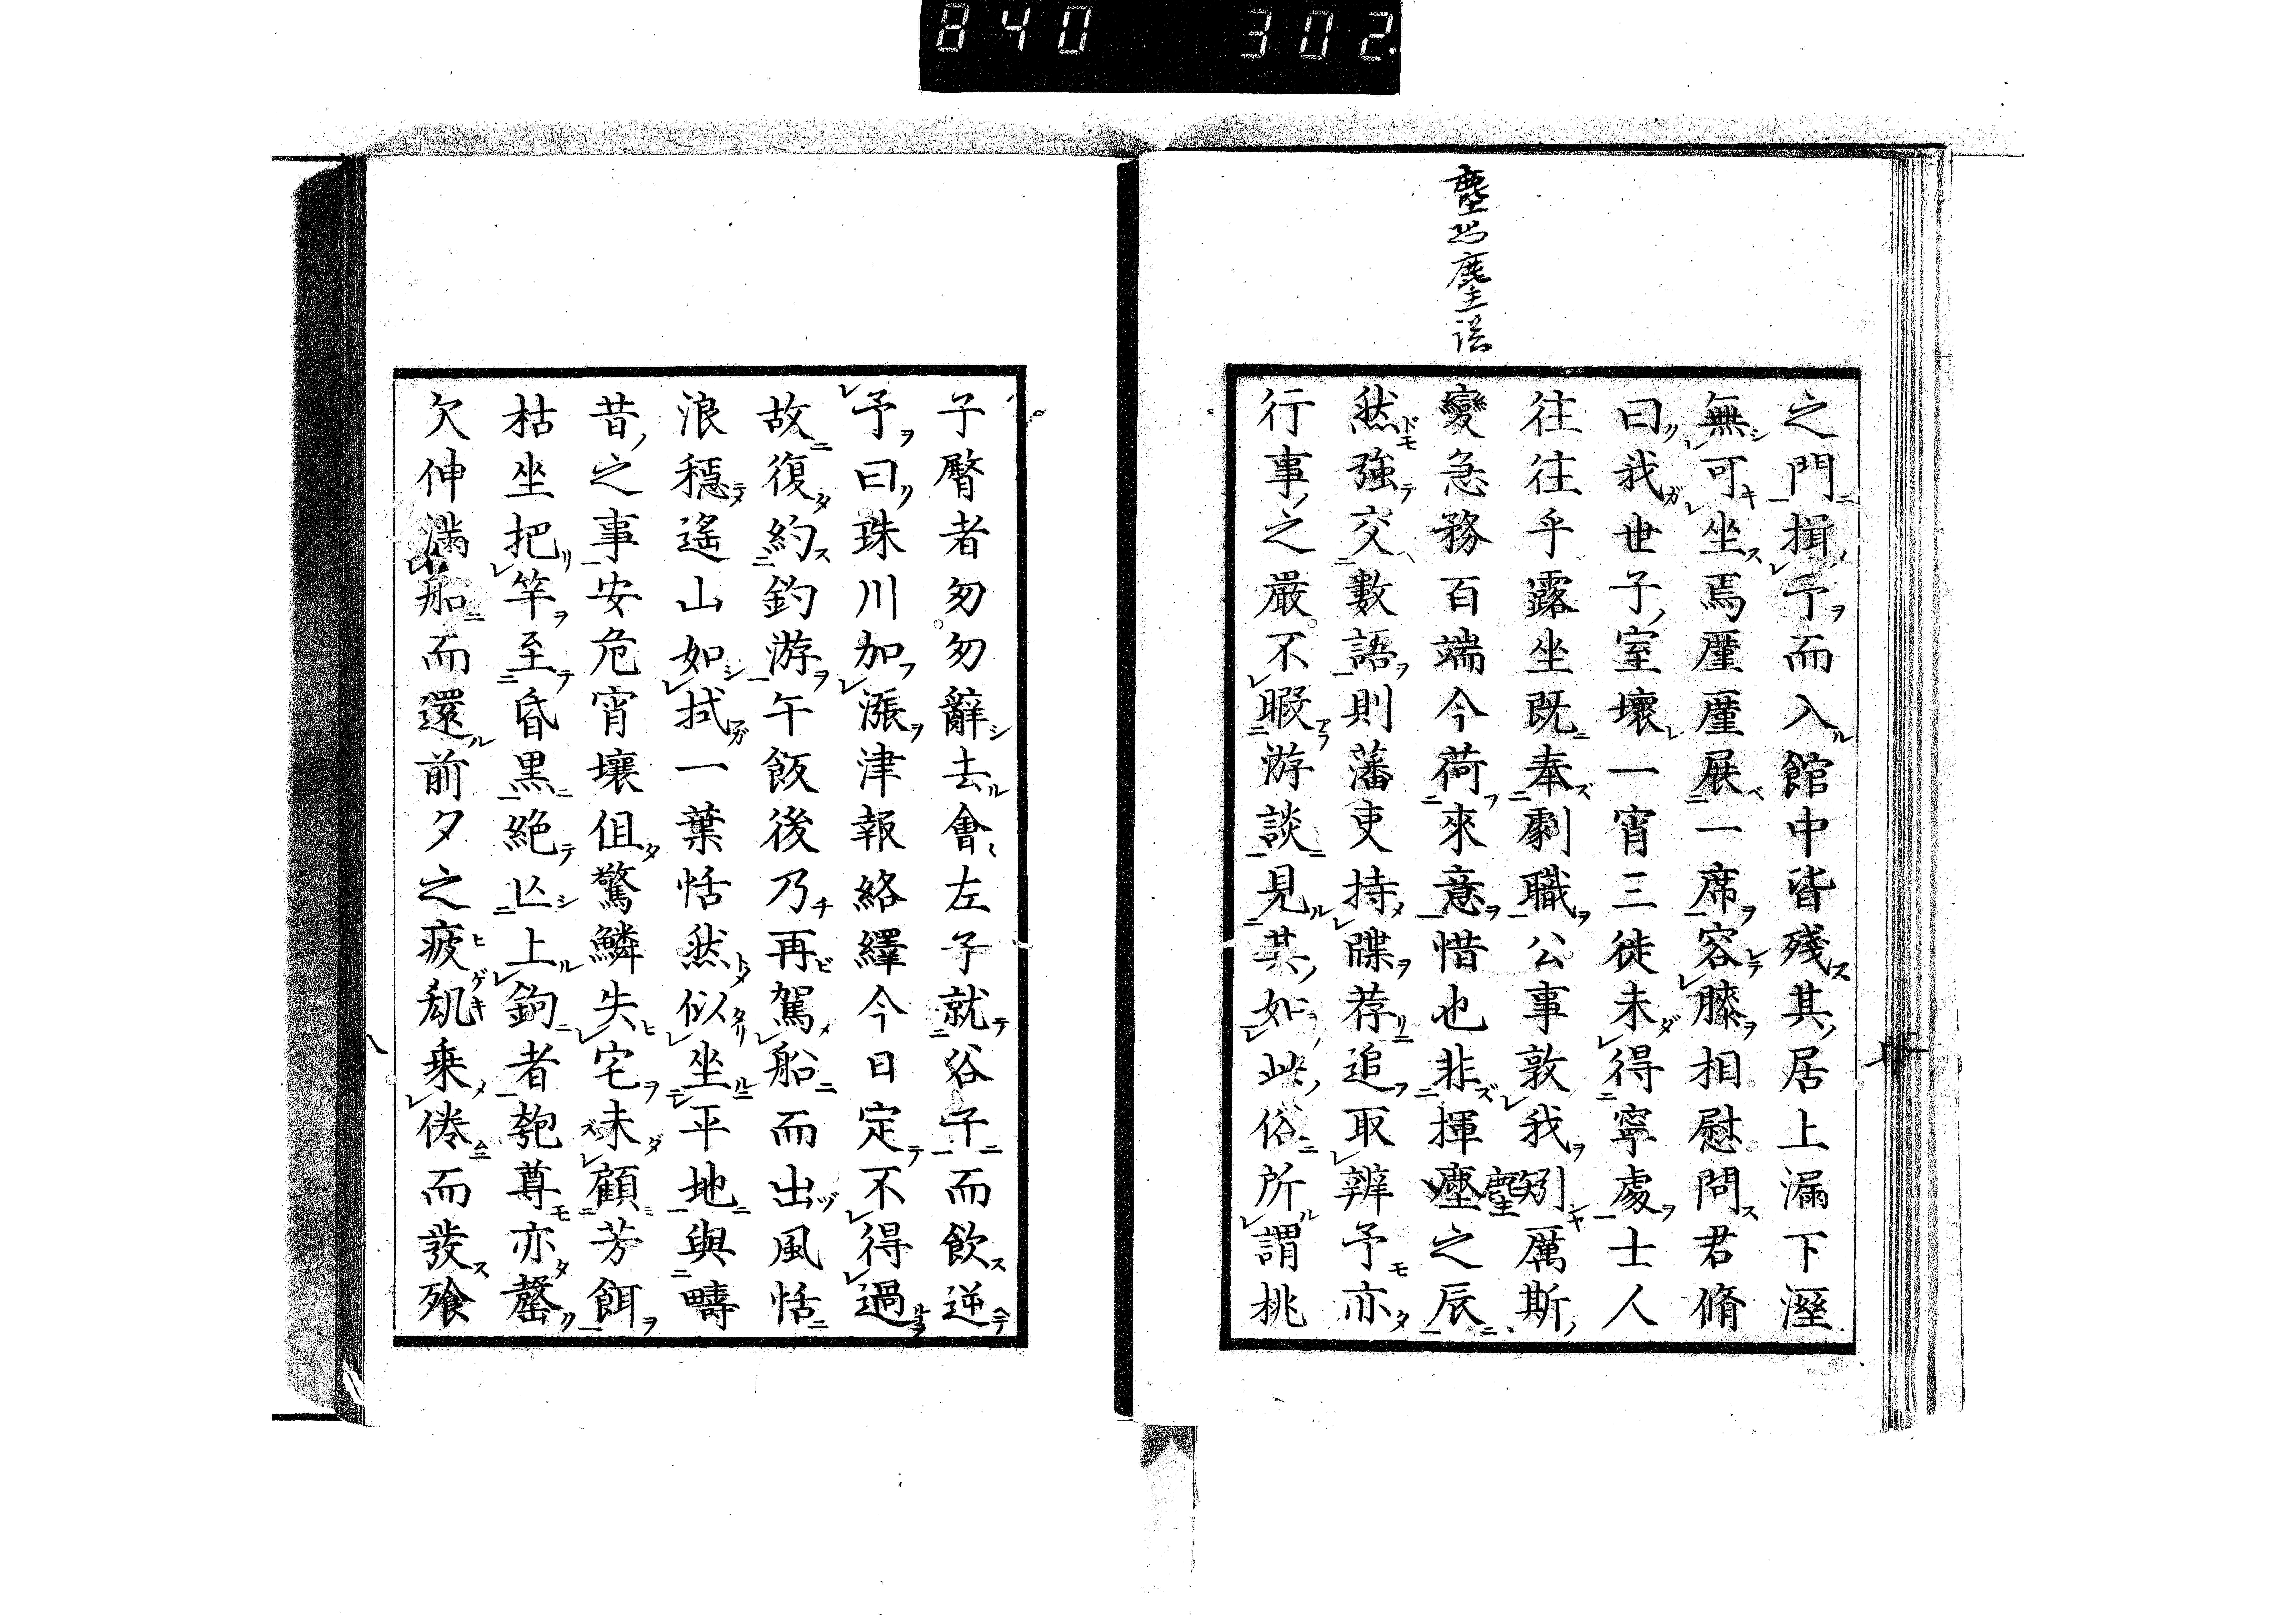 840 302.
塵恐麈誤
之門揖予而入館中皆殘其居上漏下溼
無可坐焉厪厪展一席容膝相慰問君脩
曰我世子室壞一宵三徙未得寧處士人
往往乎露坐既奉劇職公事敦我矧厲斯
變急務百端今荷來意惜也非揮塵之辰
麈
然強交數語則藩吏持牒荐追取辨予亦
行事之嚴不暇游談見其如此俗所謂挑
子臀者匆匆辭去會左子就谷子而飲逆
予曰珠川加漲津報絡繹今日定不得過
故復約釣游午飯後乃再駕船而出風恬
浪穩遙山如拭一葉恬然似坐平地與疇
昔之事安危宵壤伹驚鱗失宅未顧芳餌
枯坐把竿至昏黒絶亾上鉤者匏尊亦罄
欠伸滿船而還前夕之疲劇乗倦而發飧